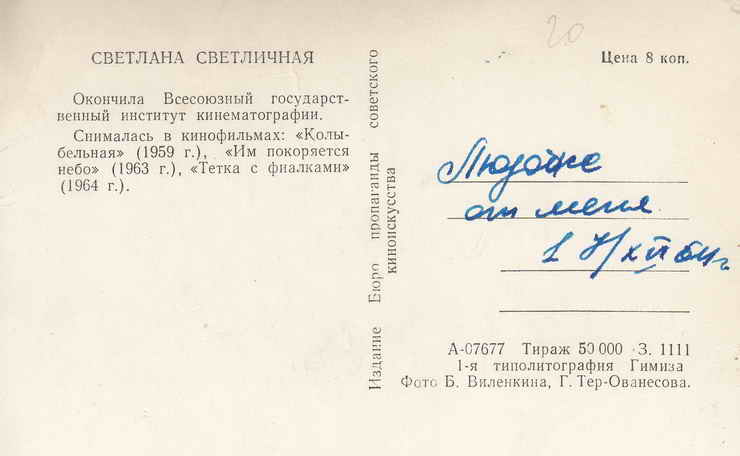 20
СВЕТЛАНА СВЕТЛИЧНАЯ
Окончила Всесоюзный государст-
венный институт кинематографии.
Снималась в кинофильмах: «Колы-
бельная» (1959 г.), «Им покоряется
небо» (1963 г.), «Тетка с фиалками»
(1964 г.).
Издание Бюро пропаганды советского
киноискусства
Цена 8 коп.
от меня
А-07677 Тираж 50 000 З. 1111
1-я типолитография Гимиза
Фото Б. Виленкина, Г. Тер-Ованесова.